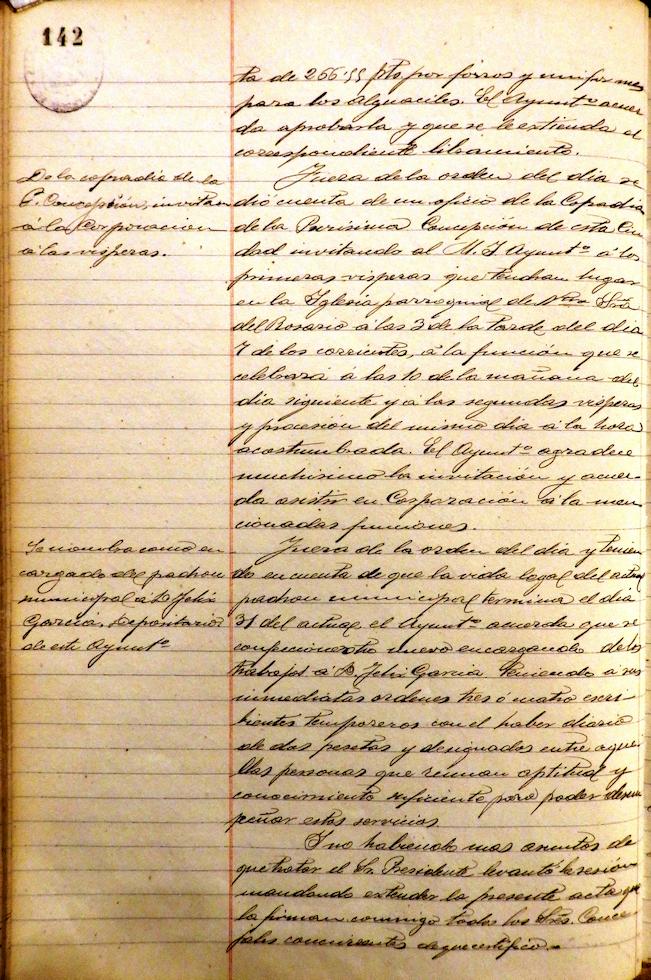 142
ta de 266'55 pts por forros y uniformes
para los alguaciles. El Ayuntº acuer
da aprobarla y que se le estienda el
correspondiente libramiento.
De la cofradia de la
P. Concepción, invitan
á la Corporacion
a las visperas.
Fuera de la orden del dia se
dió cuenta de un oficio de la Cofradia
de la Purisima Concepción de esta Ciu
dad invitando al M. I. Ayuntº á las
primeras visperas que tendran lugar
en la Iglesia parroquial de Ntra Sra
del Rosario á las 3 de la tarde del dia
7 de los corrientes, á la función que se
celebrará á las 10 de la mañana del
dia siguiente y á las segundas visperas
y procesion del mismo dia á la hora
acostumbrada. El Ayuntº agradece
muchisimo la invitación y acuer-
da asistir en Corporación á la men
cionadas funciones.
Se nombra como en
cargado del padron
municipal á D. Felix
Garcia, Depositario
de este Ayuntº
Fuera de la orden del dia y tenien
do en cuenta de que la vida legal del actual
padron municipal termina el dia
31 del actual el Ayuntº acuerda que se
confeccione otro nuevo encargando de los
trabajos á D. Felix Garcia. Teniendo á sus
inmediatas ordenes tres ó cuatro escri-
bientes temporeros con el haber diario
de dos pesetas y designados entre aque
llas personas que reunan aptitud y
conocimiento suficiente para poder desem
peñar estos servicios.
I no habiendo mas asuntos de
que tratar el Sr. Presidente levantó la sesión
mandando extender la presente acta que
la firman conmigo todos los Sres. Conce
jales concurrentes de que certifico.=